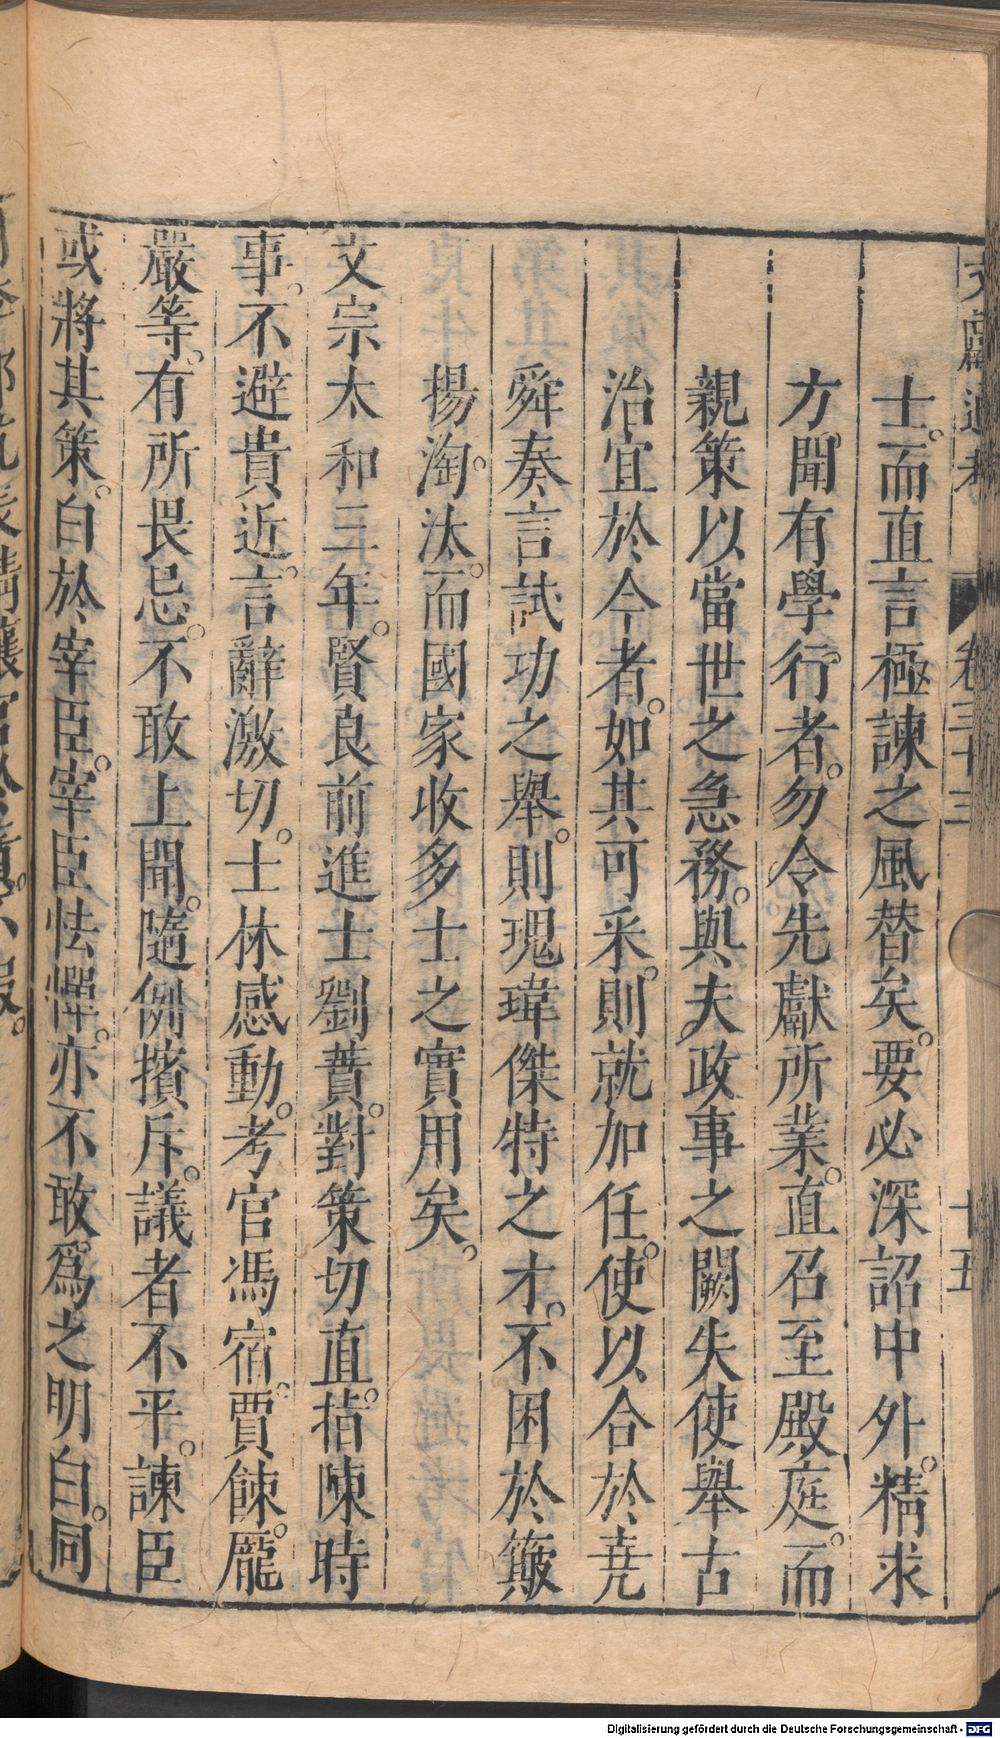 文獻通考 卷三十三 十五
士而直言極諫之風替矣。要必深詔中外。精求
方聞有學行者。勿令先獻所業。直召至殿庭。而
親策以當世之急務。與夫政事之闕失使舉古
治宜於今者。如其可采。則就加任使。以合於堯
舜奏言試功之舉。則瑰瑋傑特之才。不困於簸
揚淘汰。而國家收多士之實用矣。
文宗太和三年。賢良前進士劉蕡。對策切直。指陳時
事。不避貴近。言辭激切。士林感動。考官馮宿。賈餗。龐
嚴等。有所畏忌。不敢上聞。隨例擯斥。議者不平。諫臣
或將其策。白於宰臣。宰臣怯憚。亦不敢爲之明白。同
Digitalisierung gefördert durch die Deutsche Forschungsgemeinschaft - DFG